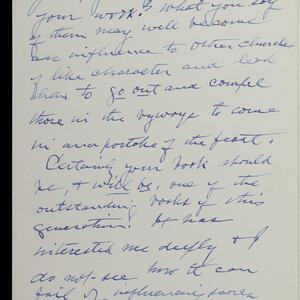 your work? What you say
of them may well become
an influence to other churches
of like character and lead
them to go out and compel
those in the byways to come
in and partake of the feast.
Certainly your book should
be, & will be, one of the
outstanding books of this
generation. It has
interested me deeply & I
do not see how it can
fail of influencing scores